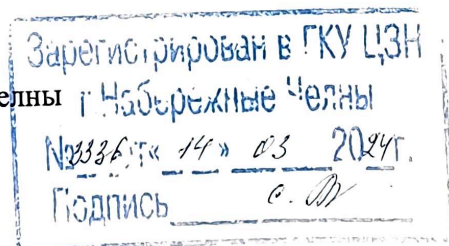 Зарегистрирован в ГКУ ЦЗН
елны г Набережные Челны
№3336 от« 14 » 03 2024г.
Подпись